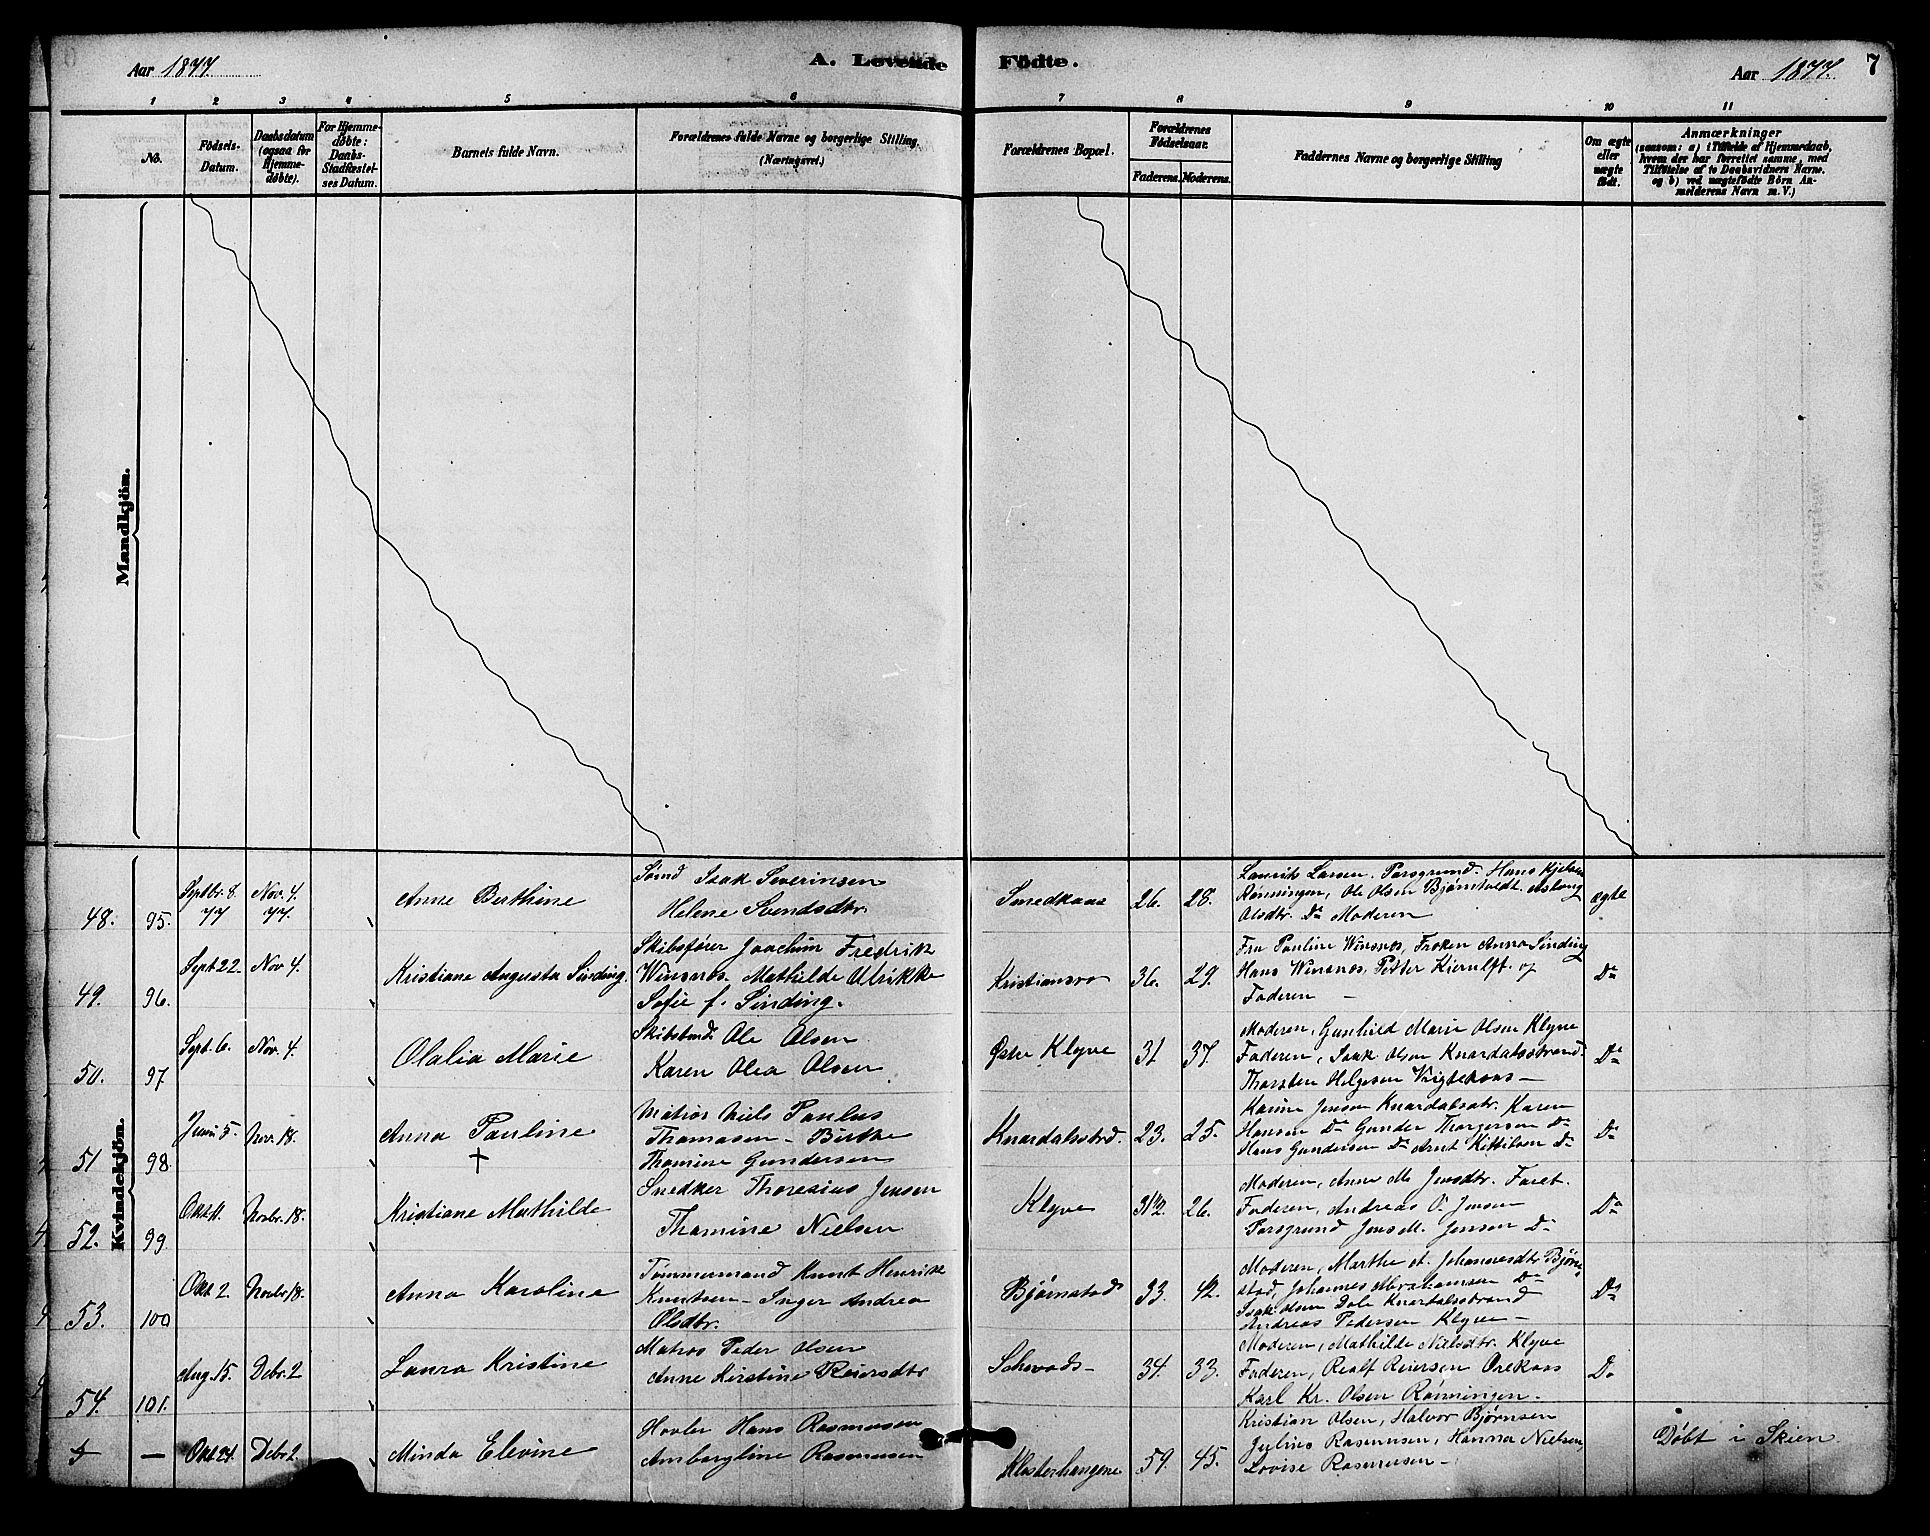 Aar 1877.
A. Levende Födte.
Aar 1877. 7
1 2 3 4 5 6 7 8 9 10 11
No.
Födsels-
Datum.
Daabsdatum
(ogsaa for
Hjemme-
döbte).
For Hjemme-
døbte:
Daabs-
Stadfæstel-
ses Datum.
Barnets fulde Navn.
Forældrenes fulde Navne og borgerlige Stilling.
(Næringsvei.)
Forældrenes Bopæl.
Forældrenes
Födselsaar.
Faderens. Moderens.
Faddernes Navne og borgerlige Stilling
Om ægte
eller
uægte
født.
Anmærkninger
(saasom: a) i Tilfælde af Hjemmedaab,
hvem der har forrettet samme, med
Tilföielse af to Daabsvidners Navne.
og b) ved uægtefödte Börn An-
melderens Navn m. V.)
Mandkjön.
Kvindekjön.
48. 95. Septbr. 8. 77 Nov. 4. 77.
Anne Berthine
Isak Severinsen
Helene Svendsdtr.
Smedkaas 26. 28.
Laurits Larsen, Porsgrund. Hans Kjelsen
Rønningen, Ole Olsen Bjørntvedt. Aslaug
Olsdtr. Do Moderen
ægte
49. 96. Sept. 22. Nov 4.
Kristiane Augusta Sinding.
Skibsfører Joachim Fredrik
Winsnes. Mathilde Ulrikke
Sofie f. Sinding.
Kristiansro 36. 29.
Fru Pauline Winsnes, Frøken Anna Sinding
Hans Winsnes, Petter Kierulff. og
Faderen –
Do
50. 97 Sept. 6. Nov. 4.
Olalia Marie
Skibstmd Ole Olsen
Karen Olea Olsen
Østre Klyve 31 37.
Moderen, Gunhild Marie Olsen Klyve
Faderen, Isak Olsen Knardalsstrand.
Thorsten Helgesen Vrigtekaas –
Do
51 98. Juni 5. Nov. 18.
Anna Pauline
†
Matros Niels Paulus
Thomasen – Birthe
Thomine Gundersen
Knardalsstrd. 23. 25.
Karine Jensen Knardalsstr. Karen
Hansen Do Gunder Thorgersen Do
Hans Gundersen Do Arnt Kittilsen Do
Do
52. 99. Okt. 11. Novbr. 18.
Kristiane Mathilde
Snedker Thoresius Jensen
Thomine Nielsen
Klyve 31 1/2. 26.
Moderen, Anne M. Jensdtr. Faret.
Faderen, Andreas O. Jensen
Porsgrund Jens M. Jensen Do
Do
53. 100 Okt 2. Novbr 18.
Anna Karoline
Tømmermand Knut Henrik
Knutsen – Inger Andrea
Olsdtr.
Bjørnstad 33. 42.
Moderen, Marthe A. Johannesdtr Bjørn-
stad, Johannes Abrahamsen Do
Isak Olsen Dale Knardalsstrand
Andreas Pedersen Klyve –
Do
54. 101. Aug. 15. Debr. 2
Laura Kristine
Matros Peder Olsen
Anne Kirstine Reiersdtr
34. 33.
Moderen, Mathilde Nielsdtr. Klyve
Faderen, Realf Reiersen Orekaas
Karl Kr. Olsen Rønningen.
Do
– Okt 21. Debr 2.
Minda Elevine
Høvler Hans Rasmussen
Ambergtine Rasmussen
Klosterhaugene 59. 45.
Kristian Olsen, Halvor Bjørnsen
Julius Rasmussen, Hanna Nielsen,
Lovise Rasmussen –
Døbt i Skien.